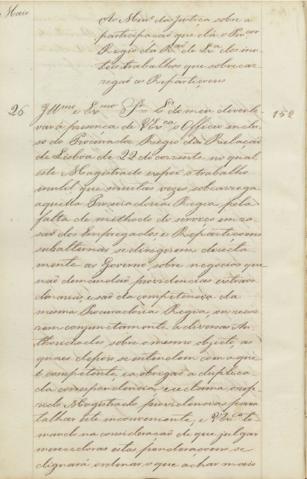 Maio
Ao Min.º da Justiça sobre a
participação que dá o Pro.or
Regio da R.am de L.a do inu-
til trabalho que sobrecar-
rega as Repartiçoens
26
152
Ill.mo e Ex.mo Sñr. de meu dever le-
var á presença de V. Ex.ca o Officio inclu-
so do Procurador Regio da Relação
de Lisboa de 22 do corrente, no qual
este Magistrado expoe o trabalho
inutil que muitas vezes sobrecarrega
aquella Procuradoria Regia, pela
falta de methodo do serviço em
dos Empregados e Repartiçoens
subalternas se dirigirem directa-
mente ao Governo sobre negocios que
não demandão providencias extraor-
dinarias, e são da competencia da
mesma Procuradoria Regia, ou recor-
rem conjunctamente a diversas Au-
thoridades sobre o mesmo objecto, as
quaes depois se entendem com a que
é competente, e a obrigão a duplica-
da correspondencia, reclama o refe-
rido Magistrado providencias para
talhar este inconveniente, e V. Ex.ca to-
mando na consideração de que julgar
merecedoras estas ponderaçoens se
dignará ordenar o que achar mais